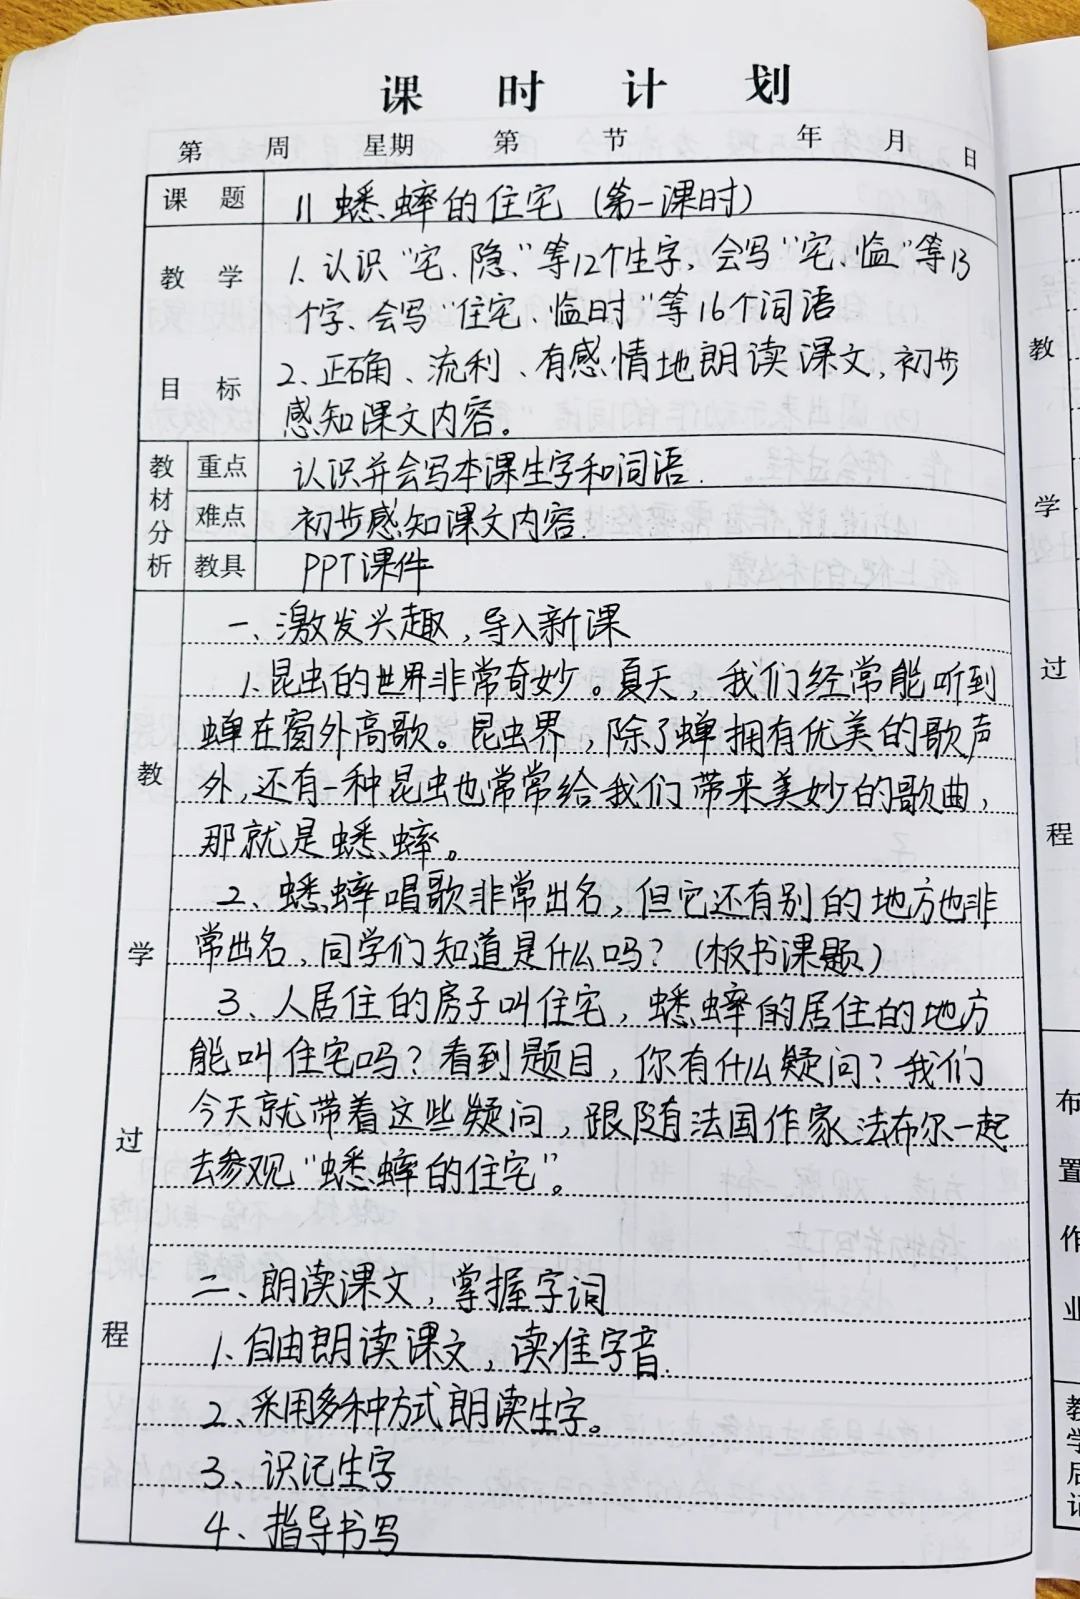 课 时 计 划
第 周 星期 第 节 年 月 日
课 题 11 蟋蟀的住宅 (第一课时)
教 学 目 标
1、认识“宅、隐、”等12个生字、会写“宅、临”等13
个字、会写“住宅、临时”等16个词语
2、正确、流利、有感情地朗读课文,初步
感知课文内容。
教材分析
重点 认识并会写本课生字和词语.
难点 初步感知课文内容.
教具 PPT课件
教 学 过 程
一、激发兴趣,导入新课
1、昆虫的世界非常奇妙。夏天,我们经常能听到
蝉在窗外高歌。昆虫界,除了蝉拥有优美的歌声
外,还有一种昆虫也常常给我们带来美妙的歌曲,
那就是蟋蟀。
2、蟋蟀唱歌非常出名,但它还有别的地方也非
常出名,同学们知道是什么吗?(板书课题)
3、人居住的房子叫住宅,蟋蟀的居住的地方
能叫住宅吗?看到题目,你有什么疑问?我们
今天就带着这些疑问,跟随法国作家法布尔一起
去参观“蟋蟀的住宅”。
二、朗读课文,掌握字词
1、自由朗读课文,读准字音.
2、采用多种方式朗读生字。
3、识记生字
4、指导书写
教
学
过
程
布
置
作
业
教
学
后
记